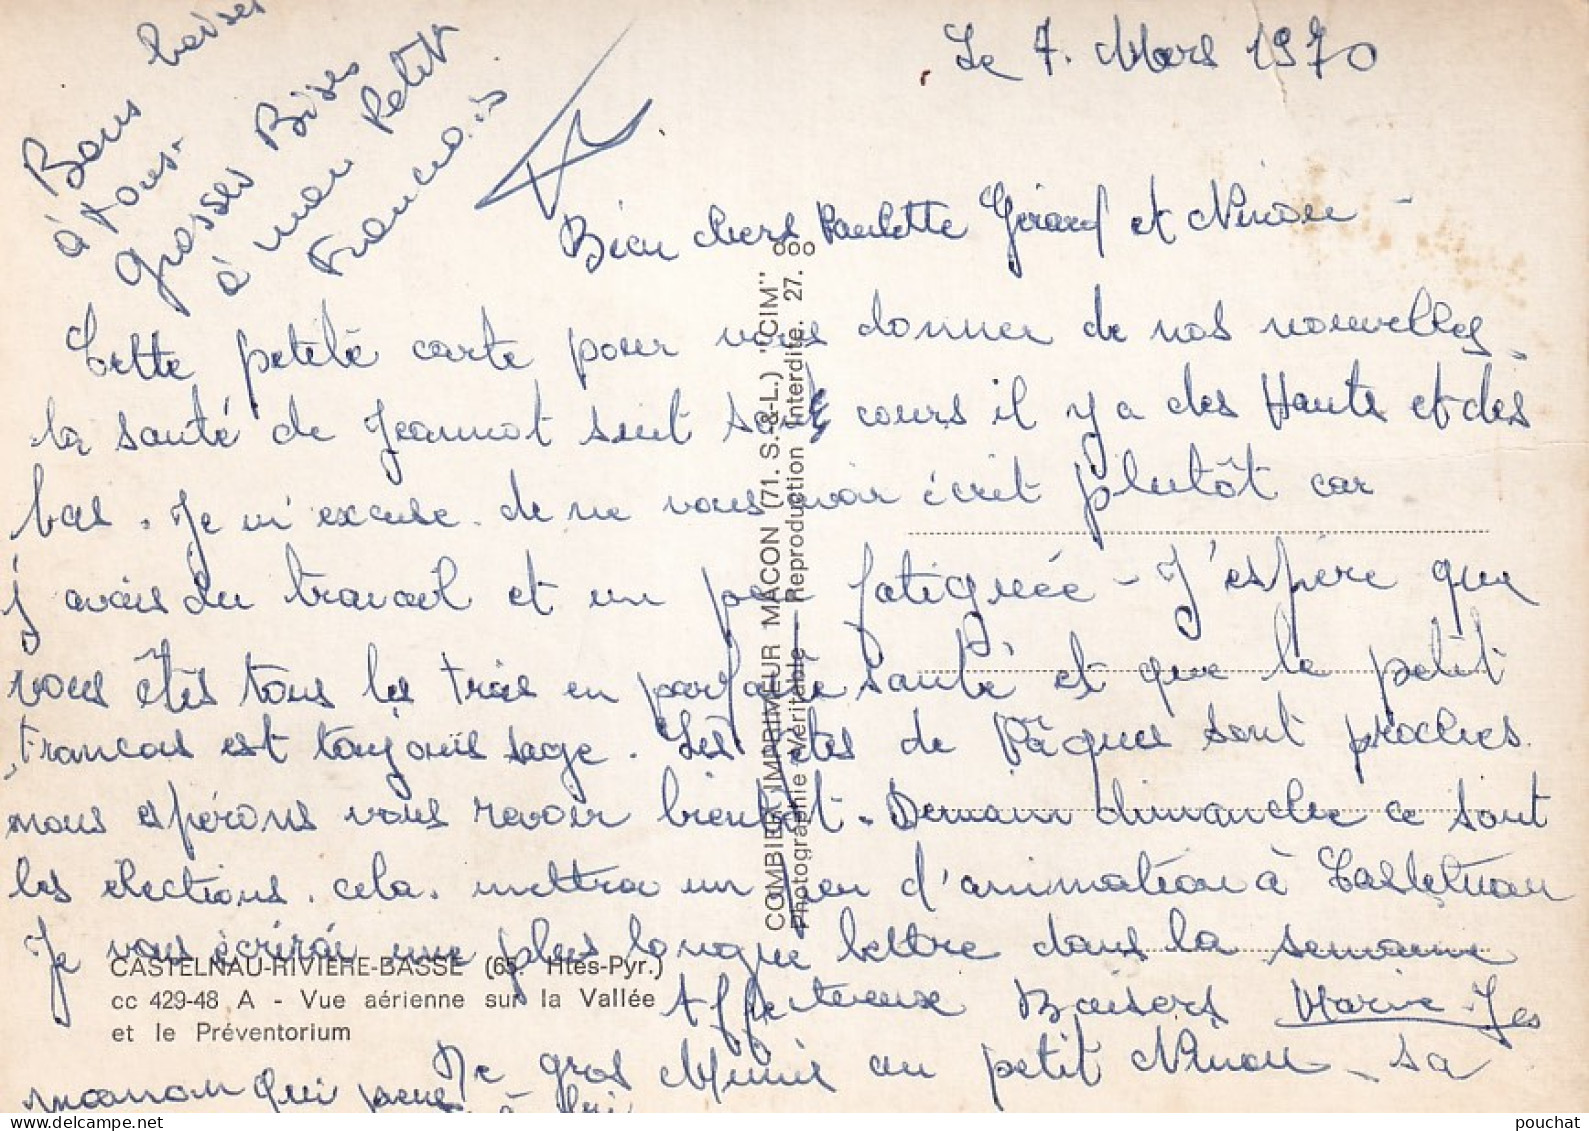 Le 7. Mars 1970
Bons baisers
à tous.
Grosses Bises
à mon Petit
Francois
Bien chers Paulette Gérard et Ninou -
Cette petite carte pour vous donner de nos nouvelles,
la santé de Jeannot suit son cours il y a des Hauts et des
bas. Je m'excuse de ne vous avoir écrit plutôt car
j'avais du travail et un peu fatiguée - J'espère que
vous êtes tous les trois en parfaite santé et que le petit
Francois est toujours sage. Les fêtes de Pâques sont proches
nous espérons vous revoir bientôt. Demain dimanche ce sont
les élections. cela. mettra un peu d'animation à Castelnau
Je vous écrirai une plus longue lettre dans la semaine
Affectueux Baisers Marie-Jes
De gros Mimis au petit Ninou - sa
maman qui pense à lui
COMBIER IMPRIMEUR MACON (71. S.-&-L.) "CIM"
Photographie Véritable — Reproduction Interdite. 27.
CASTELNAU-RIVIERE-BASSE (65. Htes-Pyr.)
cc 429-48 A - Vue aérienne sur la Vallée
et le Préventorium
pouchat